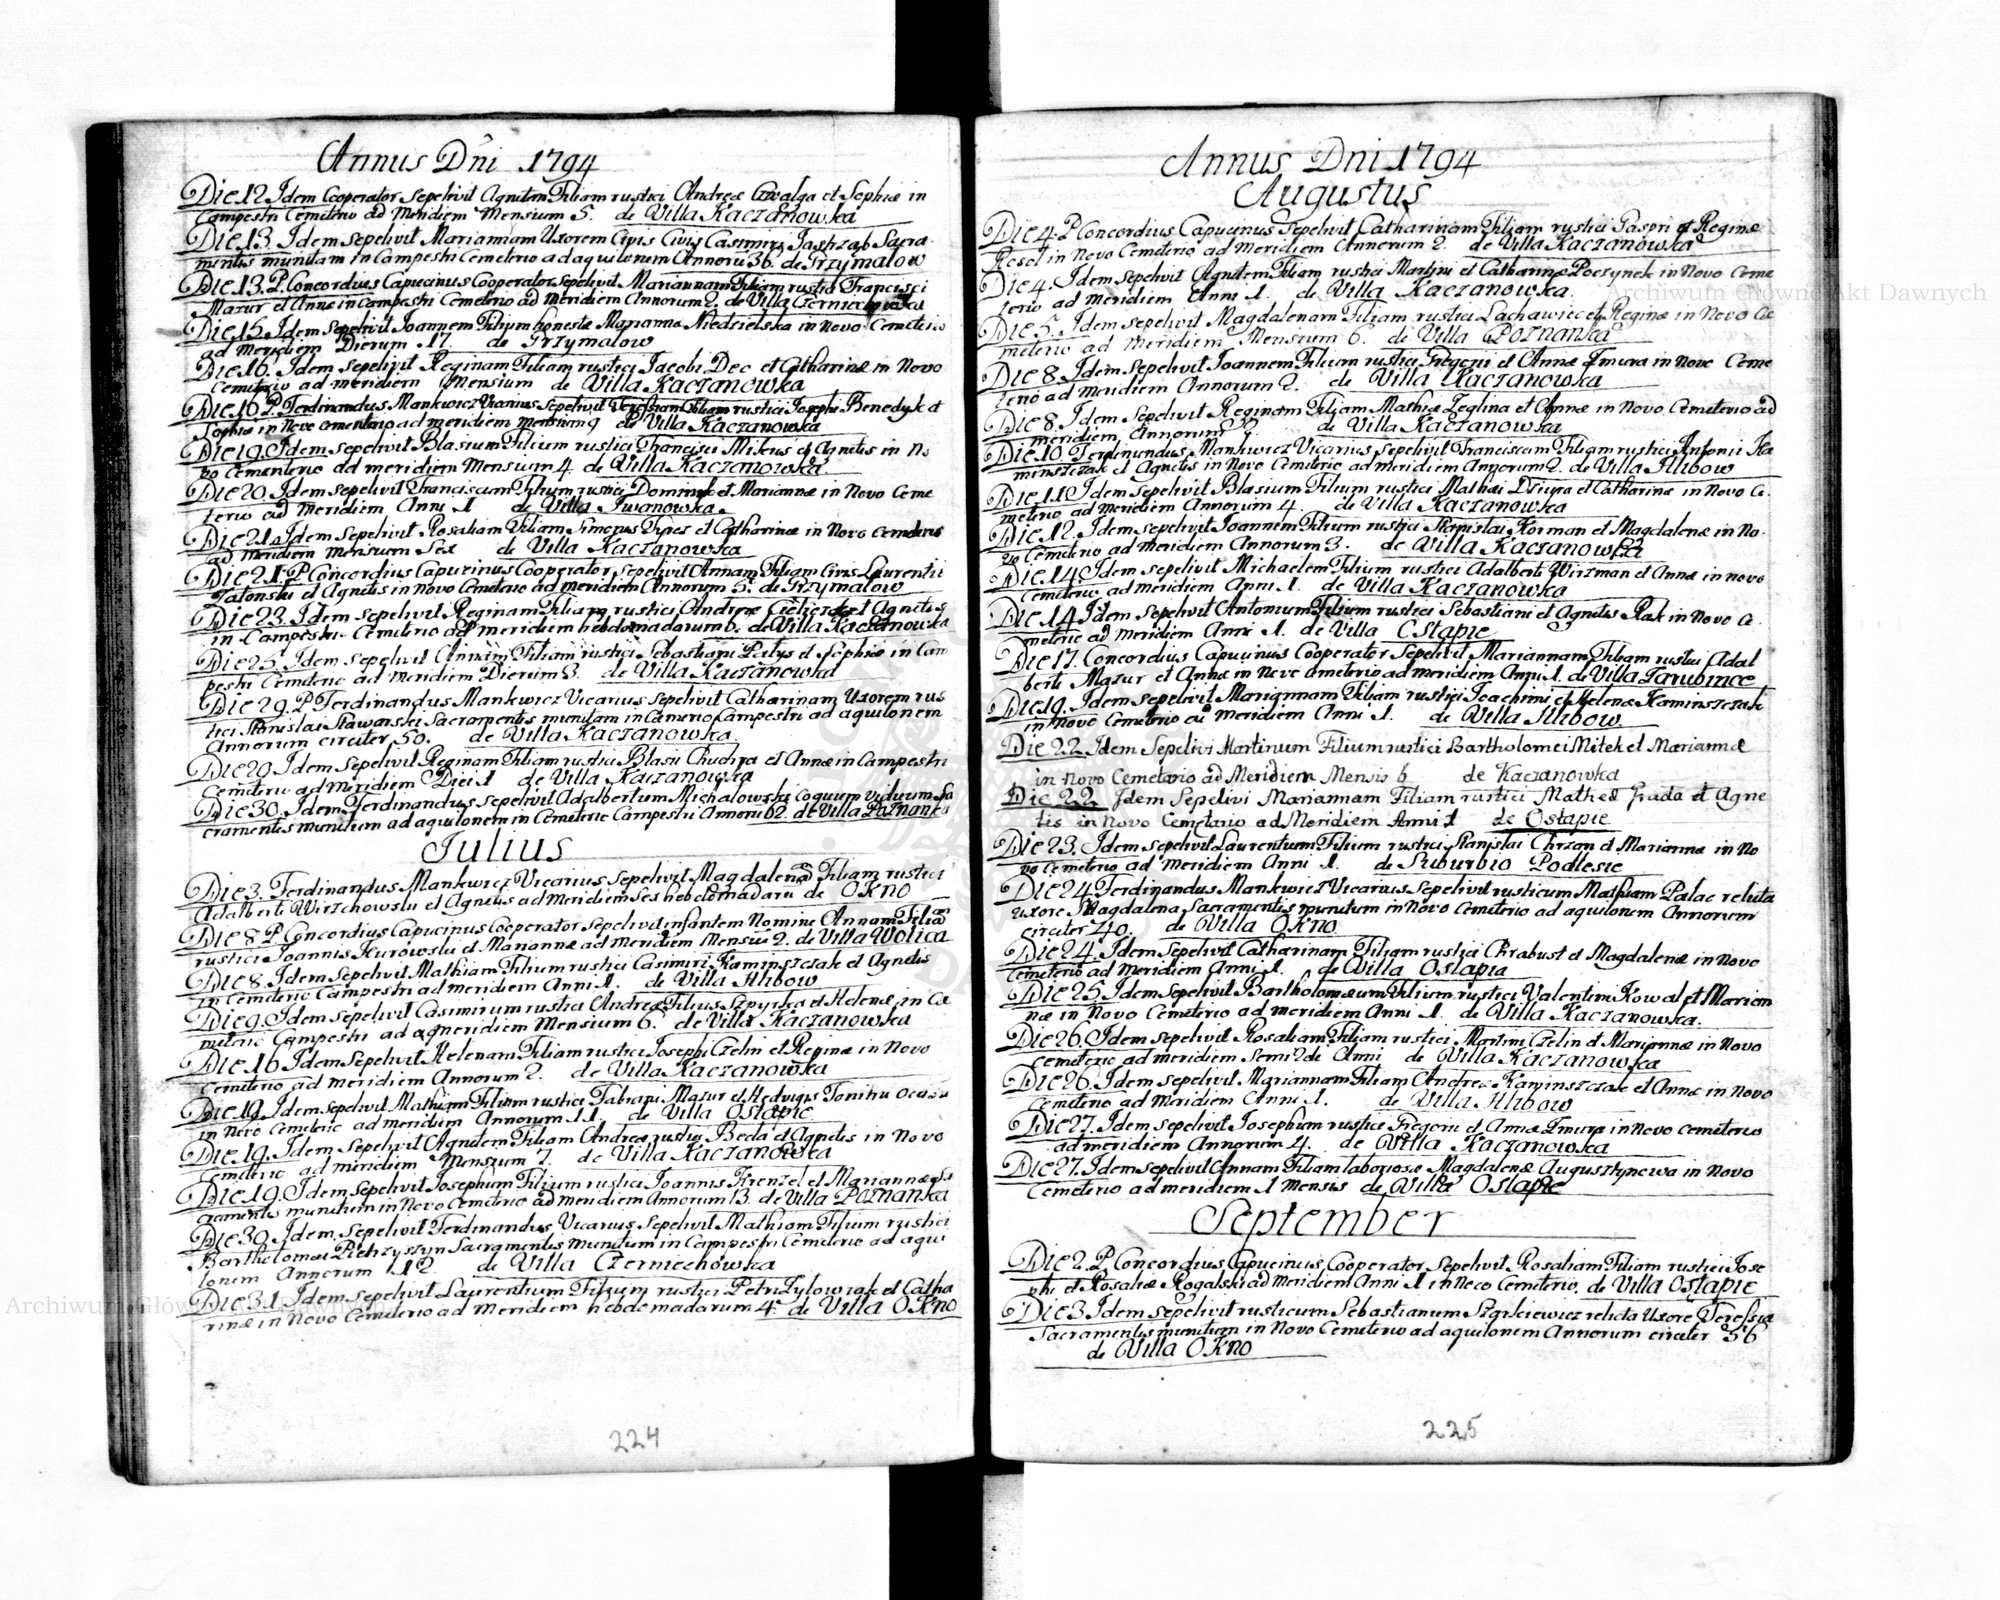 Annus Dni 1794
Die 12. Idem Cooperator Sepelivit Agnitem Filiam rustici Andreæ Gwalga et Sophiæ in
Campestri Cemeterio ad Meridiem Mensium 5. de Villa Kaczanowka
Die 13. Idem Sepelivit Mariannam Uxorem Civis Civis Casimiri Jastrząb Sacra
mentis munitam in Campestri Cemeterio ad aquilonem Annoru 36. de Grzymałow
Die 13. P. Concordius Capucinus Cooperator Sepelivit Mariannam Filiam rustici Francisci
Mazur et Annæ in campestri Cemeterio ad Meridiem Annorum 2. de Villa
Die 15. Idem Sepelivit Joannem Filium honestæ Marianna Niedzielska in Novo Cemeterio
ad Meridiem Dierum 17. de Grzymalow
Die 16. Idem Sepelivit Reginam Filiam rustici Jacobi Dec et Catharinæ in Novo
Cemeterio ad meridiem Mensium de Villa Kaczanowka
Die 16 P. Ferdinandus Mankwicz Vicarius Sepelivit Filiam rustici Josephi Benedyk et
Sophiæ in Novo Cementerio ad meridiem Mensium 9 de Villa Kaczanowka
Die 19. Idem Sepelivit Blasium Filium rustici Francisci Mikus et Agnetis in No
vo Cementerio ad meridiem Mensium 4. de Villa Kaczanowka.
Die 20. Idem Sepelivit Franciscum Filium rustici Dominik et Mariannæ in Novo Ceme
terio ad Meridiem Anni 1 de Villa Iwanowka.
Die 21. Idem Sepelivit Rosaliam Filiam Simonis et Catharinæ in Novo Cemeterio
ad Meridiem Mensium Sex de Villa Kaczanowka
Die 21. P. Concordius Capucinus Cooperator Sepelivit Annam Filiam Civis Laurentii
et Agnetis in Novo Cemeterio ad meridiem Annorum 5. de Grzymalow
Die 23. Idem Sepelivit Reginam Filiam rustici Andreæ et Agnetis
in Campestri Cemeterio ad Meridiem hebdomadarum 6. de Villa Kaczanowka
Die 25. Idem Sepelivit Annam Filiam rustici Sebastiani Patys et Sophiæ in Cam
pestri Cemeterio ad Meridiem Dierum 8. de Villa Kaczanowka
Die 29. P Ferdinandus Mankwicz Vicarius Sepelivit Catharinam Uxorem rus
tici Stanislai Stawarski Sacramentis munitam in Campestri ad aquilonem
Annorum circiter 50. de Villa Kaczanowka.
Die 29 Idem Sepelivit Reginam Filiam rustici Blasii Chudipa et Annæ in Campestri
Cemeterio ad Meridiem Diei 1 de Villa Kaczanowka
Die 30. Idem Ferdinandus Sepelivit Adalbertum Michalowski Coquum Viduum Sa
cramentis munitum ad aquilonem in Cemeterio Campestri Annoru 62. de Villa Poznanka
Julius
Die 3. Ferdinandus Mankwicz Vicarius Sepelivit Magdalenam Filiam rustici
Adalberti Wirzchowski et Agnetis ad Meridiem Ses hebdomadaru de Okno
Die 8 P. Concordius Capucinus Cooperator Sepelivit infantem Nomine Annam Filiā
rustici Joannis Kurowski et Mariannæ ad Meridiem Mensiu 2. de Villa Wolica
Die 8. Idem Sepelivit Mathiam Filium rustici Casimiri Kaminszczak et Agnetis
in Cemeterio Campestri ad meridiem Anni 1. de Villa Hlibow
Die 9. Idem Sepelivit Casimirum rustici Andreæ Filius Szpyrka et Helenæ in Ce
meterio Campestri ad meridiem Mensium 6. de Villa Kaczanowka
Die 16 Idem Sepelivit Helenam Filiam rustici Josephi Czelin et Reginæ in Novo
Cemeterio ad Meridiem Annorum 2. de Villa Kaczanowka
Die 19. Idem Sepelivit Mathiam Filium rustici Fabiani Mazur et Hedvigis Tonitru
in Novo Cemeterio ad meridiem Annorum 11. de Villa Ostapie
Die 19. Idem Sepelivit Agnetem Filiam Andreæ rustici Beda et Agnetis in Novo
Cemeterio ad meridiem Mensium 7. de Villa Kaczanowka
Die 19. Idem Sepelivit Josephum Filium rustici Joannis Krenzel et Mariannæ Sa
cramentis munitum in Novo Cemeterio ad meridiem Annorum 13. de Villa Poznanka
Die 30. Idem. Sepelivit Ferdinandus Vicarius Sepelivit Mathiam Filium rustici
Bartholomæi Pietrzyszyn Sacramentis munitum in Campestri Cemeterio ad aqui
lonem Annorum 12. de Villa Czerniechowka
Die 31. Idem Sepelivit Laurentium Filium rustici Petri Zylowiak et Catha
rinæ in Novo Cemeterio ad Meridiem hebdomadarum 4. de Villa Okno
224
Annus Dni 1794
Augustus
Die 4. P Concordius Capucinus Sepelivit Catharinam Filiam rustici Gaspri et Reginæ
Kosel in Novo Cemeterio ad Meridiem Annorum 2. de Villa Kaczanowka
Die 4. Idem Sepelivit Agnitem Filiam rustici Martini et Catharinæ Poczynek in Novo Ceme
terio ad meridiem Anni 1. de Villa Kaczanowka.
Die 5. Idem Sepelivit Magdalenam Filiam rustici Lachawiec et Reginæ in Novo Ce
meterio ad Meridiem Mensium 6. de Villa Poznanka
Die 8. Idem Sepelivit Joannem Filium rustici Gregorii et Annæ Zmura in Novo Ceme
terio ad meridiem Annorum 2. de Villa Kaczanowka
Die 8. Idem Sepelivit Reginam Filiam Mathiæ Zeglina et Annæ in Novo Cemeterio ad
meridiem Annorum de Villa Kaczanowka
Die 10. Ferdinandus Mankwicz Vicarius Sepelivit Franciscum Filium rustici Antonii Ka
minszczak et Agnetis in Novo Cemeterio ad meridiem Annorum 2. de Villa Hlibow
Die 11 Idem Sepelivit Blasium Filium rustici Mathæi Dziura et Catharinæ in Novo Ce
meterio ad meridiem Annorum 4. de Villa Kaczanowka
Die 12. Idem Sepelivit Joannem Filium rustici Stanislai Korman et Magdalenæ in No
vo Cemeterio ad Meridiem Annorum 3. de Villa Kaczanowka
Die 14. Idem sepelivit Michaelem Filium rustici Adalberti Wirzman et Annæ in novo
Cemeterio ad meridiem Anni 1. de Villa Kaczanowka
Die 14 Idem Sepelivit Antonium Filium rustici Sebastiani et Agnetis Rak in Novo Ce
meterio ad Meridiem Anni 1. de Villa Ostapie
Die 17. Concordius Capucinus Cooperator Sepelivit Mariannam Filiam rustici Adal
berti Mazur et Annæ in Novo Cmeterio ad meridiem Anni 1. de Villa Tarubince
Die 19. Idem sepelivit Mariannam Filiam rustici Joachimi et Helenæ Kaminszczak
in Novo Cemeterio ad Meridiem Anni 1. de Villa Hlibow
Die 22 Idem Sepelivi Martinum Filium rustici Bartholomei Mitek et Mariannæ
in Novo Cemetario ad Meridiem Mensis 6 de Kaczanowka
Die 22 Idem Sepelivi Mariannam Filiam rustici Matheæ Gruda et Agne
tis in Novo Cemetario ad Meridiem Anni 1 de Ostapie
Die 23. Idem Sepelivit Laurentium Filium rustici Stanislai Chrzan et Marianna in No
vo Cemeterio ad Meridiem Anni 1. de Suburbio Podlesie
Die 24 Ferdinandus Mankwicz Vicarius Sepelivit rusticum Mathiam Palac relicta
uxore Magdalena Sacramentis munitum in Novo Cemeterio ad aquilonem Annorum
circiter 40. de Villa Okno
Die 24. Idem Sepelivit Catharinam Filiam rustici Chrabust et Magdalenæ in Novo
Cemeterio ad Meridiem Anni 1. de Villa Ostapia
Die 25 Idem Sepelivit Bartholomæum Filium rustici Valentini Kowal et Marian
næ in Novo Cemeterio ad meridiem Anni 1. de Villa Kaczanowka.
Die 26. Idem Sepelivit Rosaliam Filiam rustici Martini Czelin et Mariannæ in Novo
Cemeterio ad meridiem Semi 2di Anni de Villa Kaczanowka
Die 26. Idem Sepelivit Mariannam Filiam Andreæ Kaminszczak et Annæ in Novo
Cemeterio ad Meridiem Anni 1. de Villa Hlibow
Die 27. Idem Sepelivit Josephum rustici Gregorii et Annæ Zmura in Novo cemeterio
ad meridiem Annorum 4. de Villa Kaczanowka
Die 27. Idem Sepelivit Annam Filiam laboriosæ Magdalenæ Augusztynowa in Novo
Cemeterio ad meridiem 1 Mensis de Villa Ostapie
September
Die 2. P. Concordius Capucinus Cooperator Sepelivit Rosaliam Filiam rustici Jose
phi et Rosaliæ Rogalski ad Meridiem Anni 1 in Neco Cemeterio. de Villa Ostapie
Die 3 Idem Sepelivit rusticum Sebastianum Szarkiewicz relicta Uxore Teressia
Sacramentis munitum in Novo Cemeterio ad aquilonem Annorum circiter 56
de Villa Okno
225
Archiwum Główne Akt Dawnych
Archiwum Główne Akt Dawnych